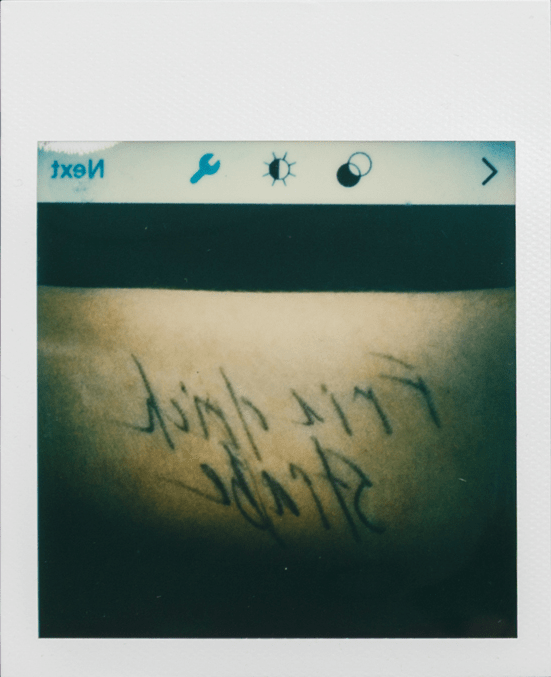 Next
Friedrich
straße